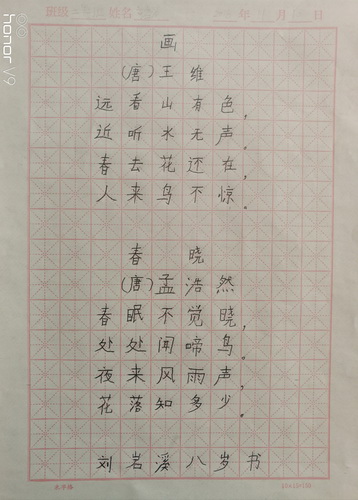 honor V9
班级 姓名 年 月 日
画
(唐)王维
远看山有色,
近听水无声。
春去花还在,
人来鸟不惊。
春晓
(唐)孟浩然
春眠不觉晓,
处处闻啼鸟。
夜来风雨声,
花落知多少。
刘岩溪八岁书